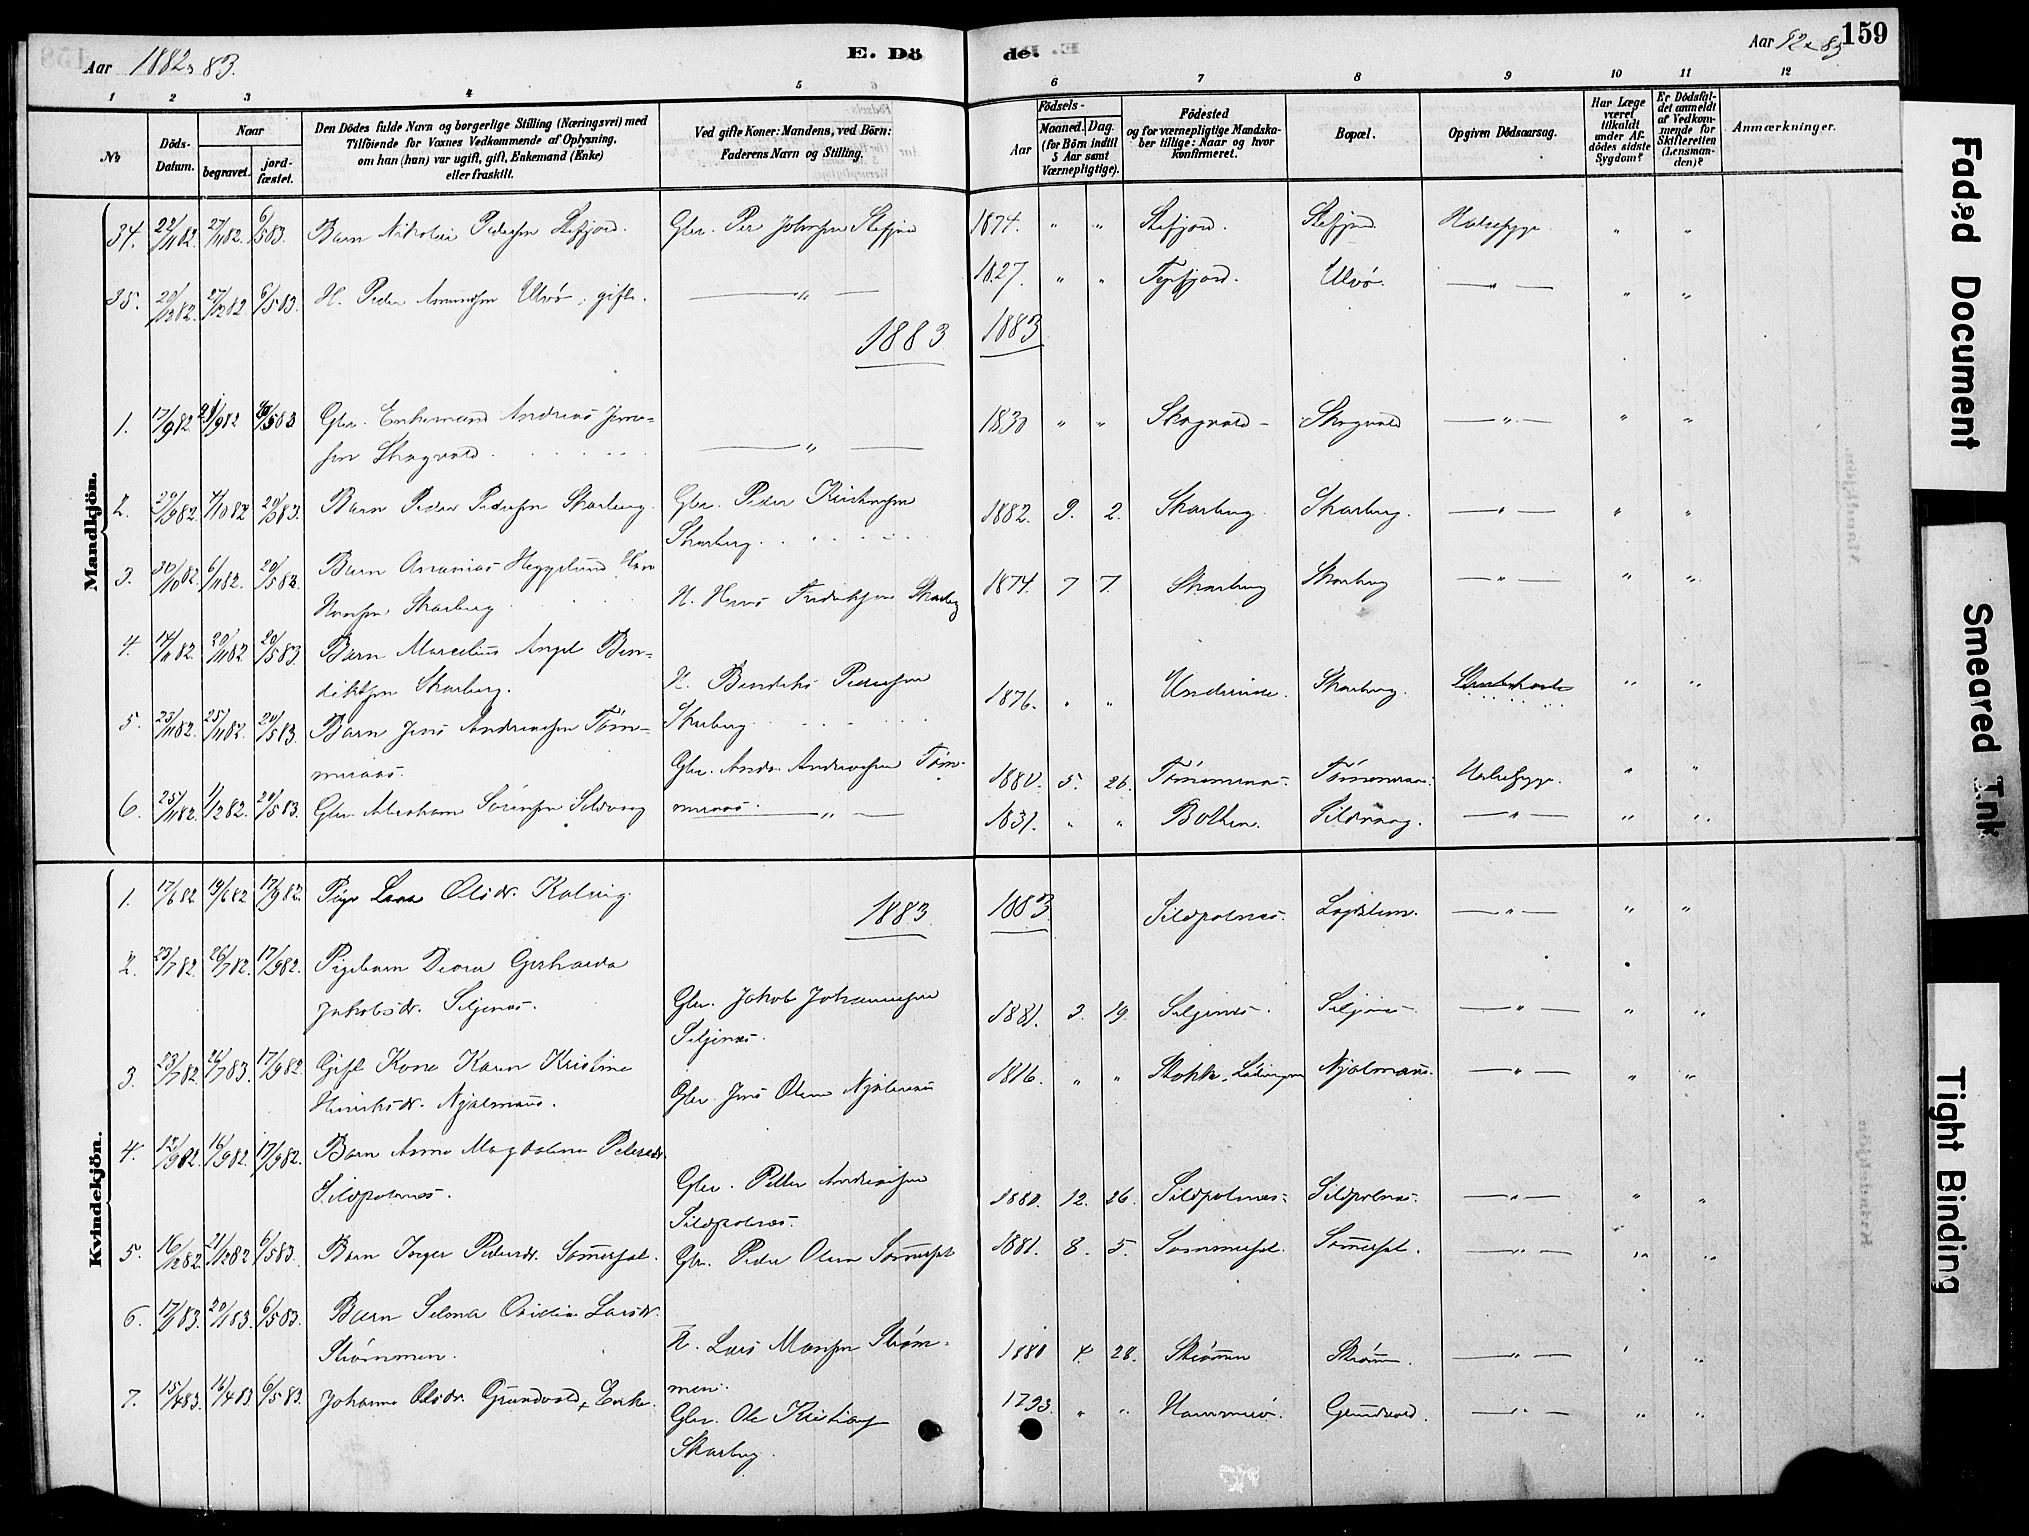 Aar 1882 & 83.
E. Dö
de.
Aar 82 & 83
159
1 2 3 4 5 6 7 8 9 10 11 12
No
Döds-Datum.
Naar
begravet.
jord-fæstet.
Den Dödes fulde Navn og borgerlige Stilling (Næringsvei) med
Tilföiende for Voxnes Vedkommende af Oplysning,
om han (hun) var ugift, gift, Enkemand (Enke)
eller fraskilt.
Ved gifte Koner: Mandens, ved Börn:
Faderens Navn og Stilling.
Födsels-
Aar
Maaned. Dag.
(for Börn indtil
5 Aar samt
Værnepligtige).
Födested
og for værnepligtige Mandska-
ber tillige: Naar og hvor
konfirmeret.
Bopæl.
Opgiven Dödsaarsag.
Har Læge
været
tilkaldt
under Af-
dödes sidste
Sygdom?
Er Dödsfal-
det anmeldt
af Vedkom-
mende for
Skifteretten
(Lensman-
den)?
Anmærkninger.
Mandkjön.
34. 22/11 82. 27/11 82. 6/5 83. Barn Nikolai Pedersen Stefjord. Gbr. Per Johnsen Stefjord 1874. " " Stefjord. Stefjord Halssyge. " "
35. 20/12 82. 27/12 82 6/5 83. N. Peder Amundsen Ulvø, gift. — " — 1827. " " Tysfjord. Ulvø. — " — " "
1883 1883
1. 17/9 82. 21/9 82 20/5 83 Gbr. Enkemand Andreas Jens-
sen Skogvold. — " — 1830 " " Skogvold - Skogvold — " — " "
2. 29/9 82. 4/10 82 20/5 83. Barn Peder Pedersen Skarberg. Gbr. Peder Kristensen
Skarberg. 1882. 9. 2. Skarberg. Skarberg. — " — " "
3. 30/10 82. 6/11 82. 20/5 83. Barn Ananias Heggelund
Hansen Skarberg N. Hans Fredriksen Skarberg 1874. 7 7. Skarberg Skarberg — " — " "
4. 14/11 82. 20/11 82. 20/5 83. Barn Marcelius Angel Ben-
diktsen Skarberg. N. Bendiks Pedersen
Skarberg 1876. " " Skarberg. " "
5. 23/11 82. 25/11 82. 20/5 83. Barn Jens Andreassen Töm-
meraas. Gbr. Andr. Andreassen Töm-
meraas. 1880. 5. 26. Tømmeraas. Tømmeraas. Halssyge. " "
6. 25/11 82. 1/12 82. 20/5 83. Gbr. Abraham Sörensen Sildvaag — " — 1831. " " Botten. Sildvaag. — " — " "
Kvindekjön.
1. 17/6 82. 19/6 82 17/9 82. Pige Lava Olsdr. Kalvig 1883 1883 Sildpolnes. — " — " "
2. 23/7 82. 26/7 82. 17/9 82. Pigebarn Gerharda
Jakobsdr. Siljenes. Gbr. Jakob Johannesen
Siljenes. 1881. 3. 19. Siljenes. Siljenes. — " — " "
3. 23/7 82. 26/7 83. 17/9 82. Gift Kone Karen Kristine
Henriksdr. Njalmaas. Gbr. Jens Olsen Njalmaas 1816. " " Stokke, Lødingen Njalmaas. — " — " "
4. 12/9 82. 16/9 82. 17/9 82. Barn Anna Magdalena Pedersdr.
Sildpolnes. Gbr. Peder Andreassen
Sildpolnes. 1880. 12. 26. Sildpolnes. Sildpolnes. — " — " "
5. 16/12 82. 21/12 82 6/5 83. Barn Inger Pedersdr. Sommerset. Gbr. Peder Olsen Sommerset 1881. 8. 5. Sommerset. Sommerset. — " — " "
6. 17/1 83. 20/1 83. 6/5 83. Barn Selma Ovidia Larsdr.
Strømmen. N. Lars Monsen Strøm-
men. 1880 4. 28. Strömmen Strömmen. — " — " "
7. 15/4 83. 16/4 83. 6/5 83. Johanna Olsdr. Grundvold, Enke. Gbr. Ole Kristians
Skarberg. 1793. " " Hammerö. Grundvold. — " — " "
Faded Document
Smeared Ink
Tight Binding